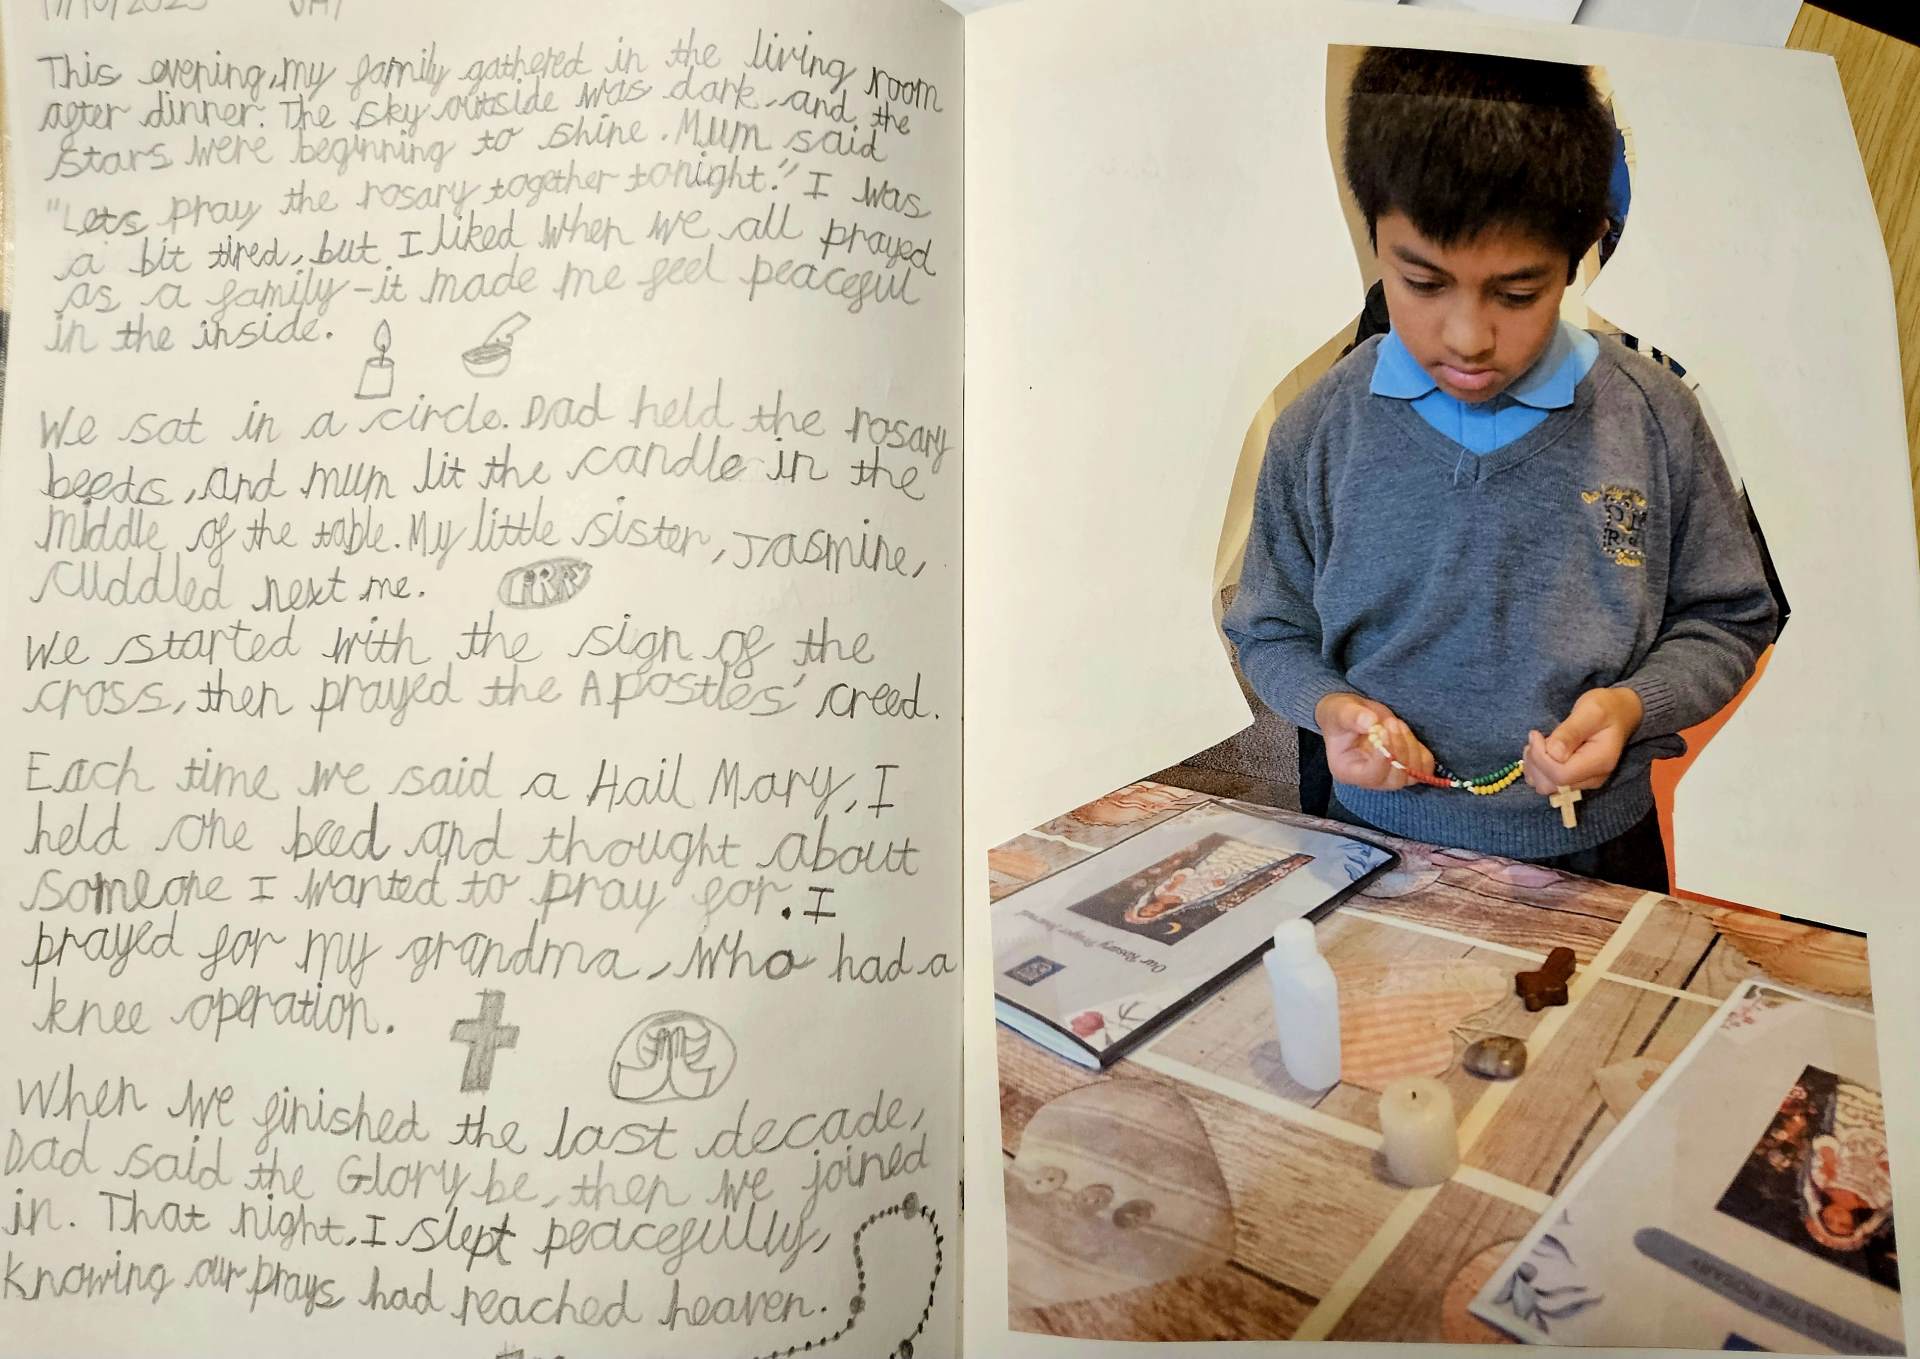 This evening, my family gathered in the living room
after dinner. The sky outside was dark, and the
stars were beginning to shine. Mum said
"Lets pray the rosary together tonight." I was
a bit tired, but I liked when we all prayed
as a family - it made me feel peaceful
in the inside.
We sat in a circle. Dad held the rosary
beeds, and mum lit the candle in the
middle of the table. My little sister, Jasmine,
cuddled next me.
We started with the sign of the
cross, then prayed the Apostles' creed.
Each time we said a Hail Mary, I
held one beed and thought about
someone I wanted to pray for. I
prayed for my grandma, who had a
knee operation.
When we finished the last decade,
Dad said the Glory be, then we joined
in. That night, I slept peacefully,
knowing our prays had reached heaven.
Our Rosary Prayer Journal